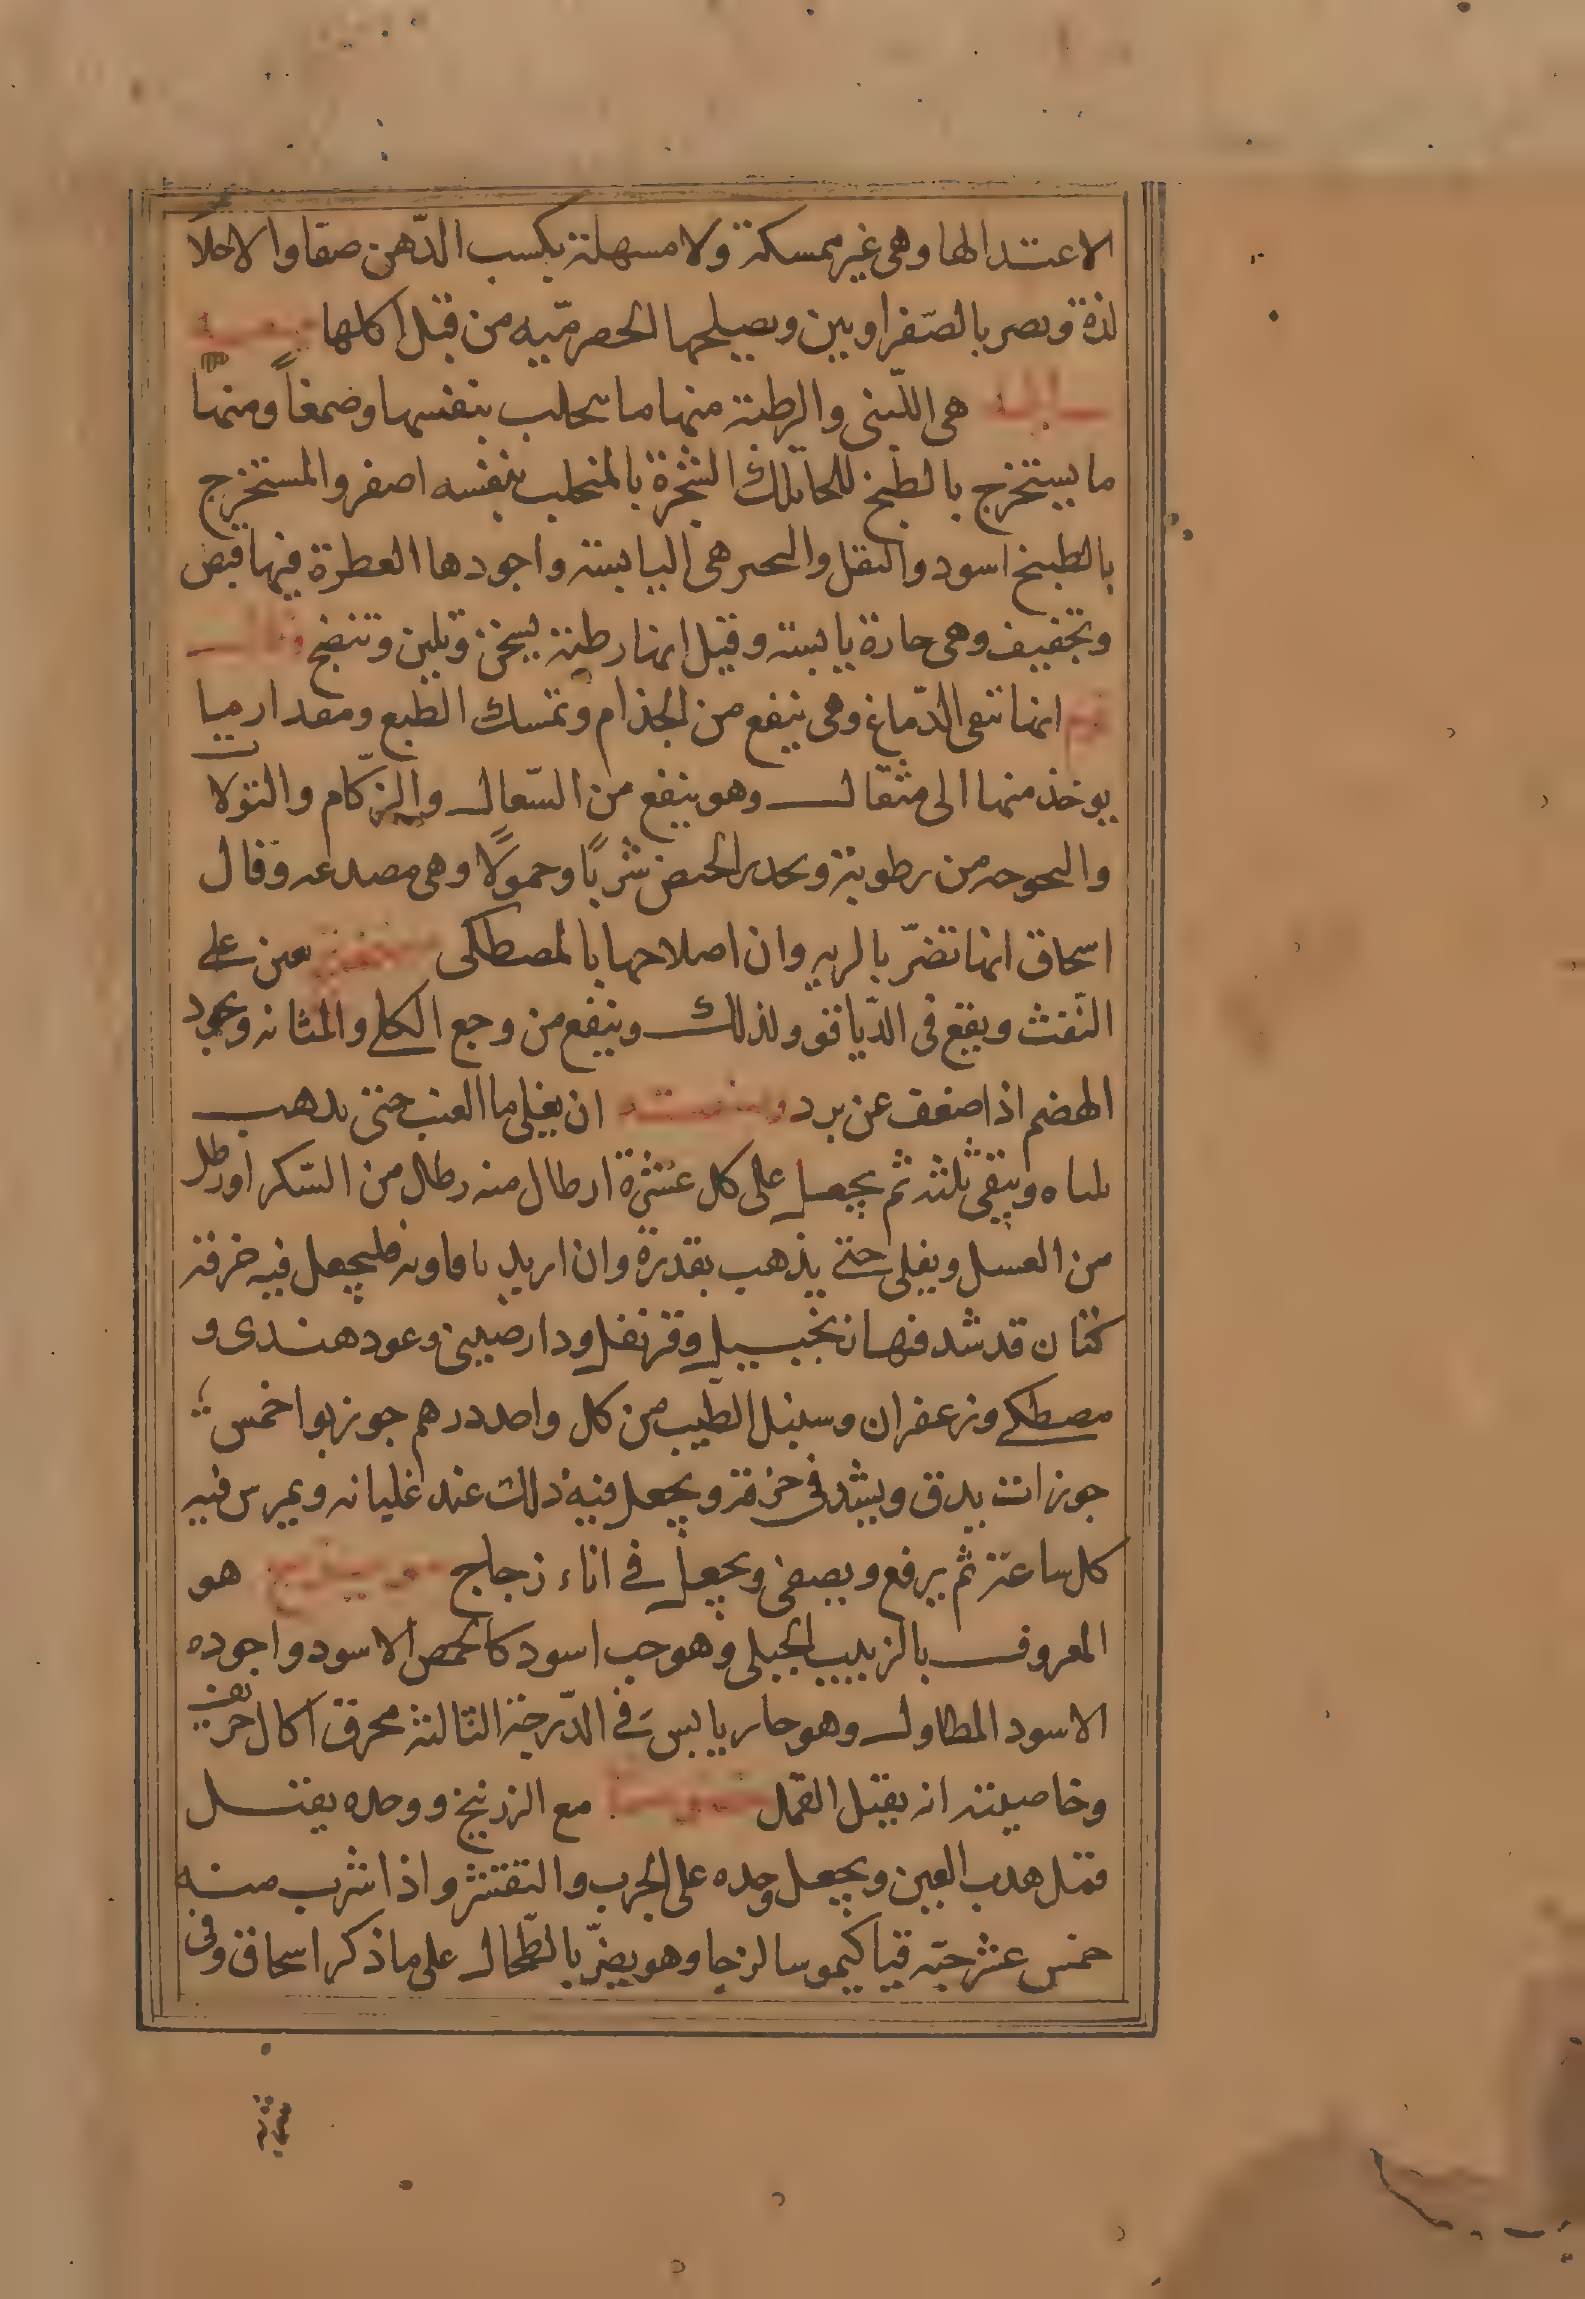 الاعتدالها وهى غير ممسكة ولا مسهلة يكسب الدّهن صفاوا لاخلاً
لذة وتضر بالصّفراويين ويصلحها الحصرميّه من قبل اكلها
هى اللّبنى والرطبة منها ما يتحلب بنفسها وضمغاً ومنها
ما يستخرج بالطبخ للحا تلك الشجرة بالمنحلب بنفسه اصفر والمستخرج
بالطبخ اسود والثقل والبحير هى اليابسة واجودها العطرة فيها قبض
وتجفيف وهى حارة يابسة وقيل انها رطبة يسخن وتلين وتنضج وقال
قوم انها تنقى الدّماغ وهى ينفع من الجذام وتمسك الطبع ومقدار ميا
يوخذ منها الى مثقال وهو ينفع من السّعال والزكام والنولا
والبحوحه من رطوبة ويحدر الحيض شرباً وحمولاً وهى مصدعه وقال
اسحاق انها تضرّ بالريه وان اصلاحها بالمصطكى يعين على
النّفث ويقع فى الدّياقو ولذلك وينفع من وجع الكلى والمثانه ويجود
الهضم اذا ضعف عن برد وصنعته ان يغلى ما العنب حتى يذهب
ثلثاه ويبقى ثلثه ثم يجعل على كل عشرة ارطال منه رطال من السّكر اورطل
من العسل ويغلى حتى يذهب بقدرة وان اريد بافاويه فليجعل فيه خرقة
كتان قد شد فيها زنجبيل وقرنفل ودارصينى وعود هندى و
مصطكى وزعفران وسنبل الطيب من كل واحد درهم جوزبوا خمس
جوزات يدق ويشد فى خرقة ويجعل فيه ذلك عند غليانه ويمرس فيه
كل ساعة ثم يرفع ويصفى ويجعل فى اناء زجاج هو
المعروف بالزبيب الجبلى وهو حب اسود كالحمص الاسود واجوده
الاسود المطاول وهو حار يابس فى الدّرجة الثالثة محرق اكال حريف
وخاصيته انه يقتل القمل مع الزرنيخ ووحده يقتل
قمل هدب العين ويجعل وحده على الجرب والتقشر واذا شرب منه
خمس عشر حبّة قيا كيموسا لزجا وهو يضرّ بالطحال على ما ذكر اسحاق وفى